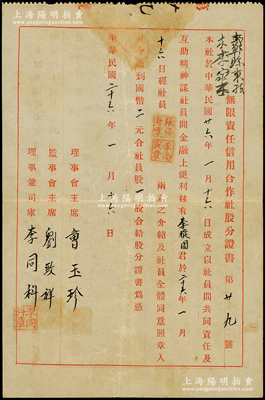 上海陽明拍賣
無限責任信用合作社股分證書 第廿九號
本社於中華民國廿六年一月十六日成立以社員間共同責任及
互助精神謀社員間金融上便利茲有李 國君於二十六年一月
十六日經社員 兩君之介紹及社員全體同意照章入
社 繳到國幣二元合社員股一股合給股分證書爲憑
中華民國二十六年一月十六日
理事會主席 曹玉珍
監事會主席 劉致祥
理事兼司庫 李同科